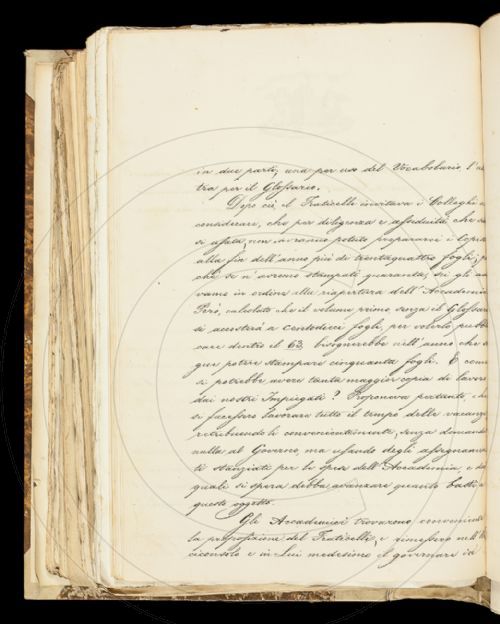 in due parti, una per uso del Vocabolario, l'al
tra per il Glossario.
Dopo ciò il Fraticelli invitava i Colleghi a
considerare, che per diligenza e assiduità che
si usata, non avranno potuto prepararsi i copia
alla fine dell'anno più di trentaquattro fogli;
chè se n'avremo stampati quaranta, sei gli
vamo in ordine alla riapertura dell'Accademia
Però, calcolato che il volume primo senza il Glossario
si accosterà a centodieci fogli, per volerlo pubbli
care dentro il 63, bisognerebbe nell'anno che
gue potere stampare cinquanta fogli. E come
si potrebbe avere tanta maggior copia di lavoro
dai nostri Impiegati? Proponeva pertanto, che
si facessero lavorare tutto il tempo delle vacanze
retribuendoli convenientemente, senza domandar
nulla al Governo, ma usando degli assegnamen
ti stanziati per le spese dell'Accademia, e
quali si spera debba avanzare quanto basti
questo oggetto.
Gli Accademici trovarono conveniente
la proposizione del Fraticelli, e rimessero nell'
ciconsolo e in lui medesimo il governare in